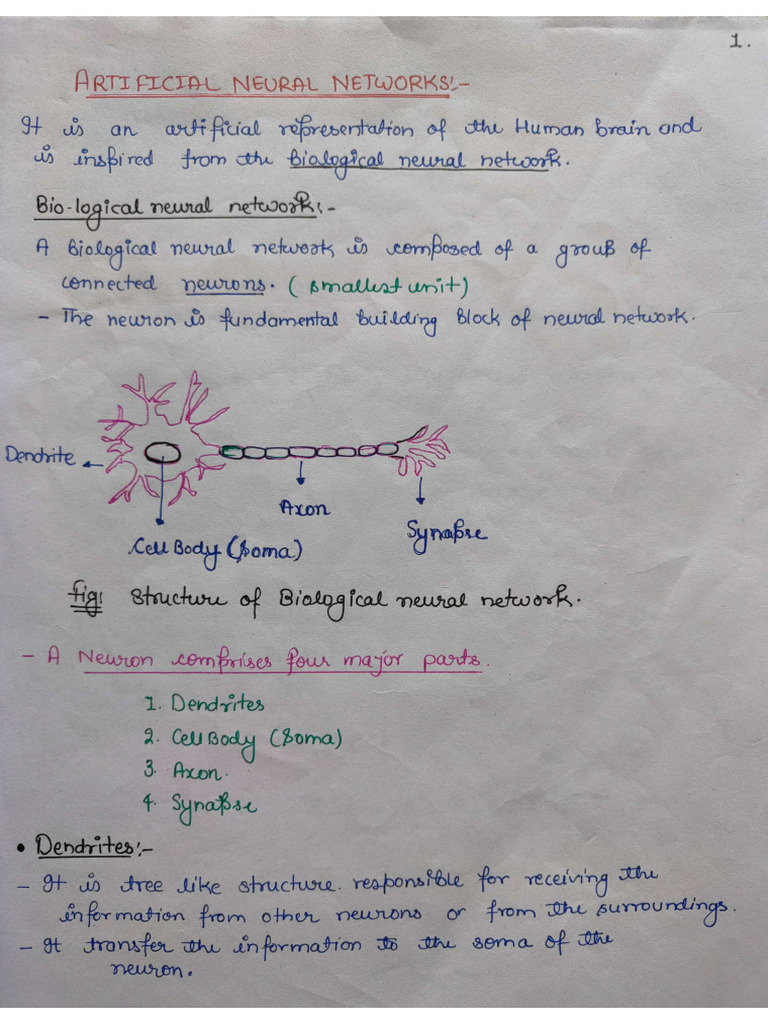 1.
ARTIFICIAL NEURAL NETWORKS:-
It is an artificial representation of the Human brain and
is inspired from the Biological neural network.
Bio-logical neural network:-
A Biological neural network is composed of a group of
connected neurons. (smallest unit)
- The neuron is fundamental building block of neural network.
Dendrite
Axon
Synapse
Cell Body (Soma)
fig: Structure of Biological neural network.
- A Neuron comprises four major parts.
1. Dendrites
2. Cell Body (Soma)
3. Axon.
4. Synapse
• Dendrites:-
- It is tree like structure. responsible for receiving the
information from other neurons or from the surroundings.
- It transfer the information to the soma of the
neuron.